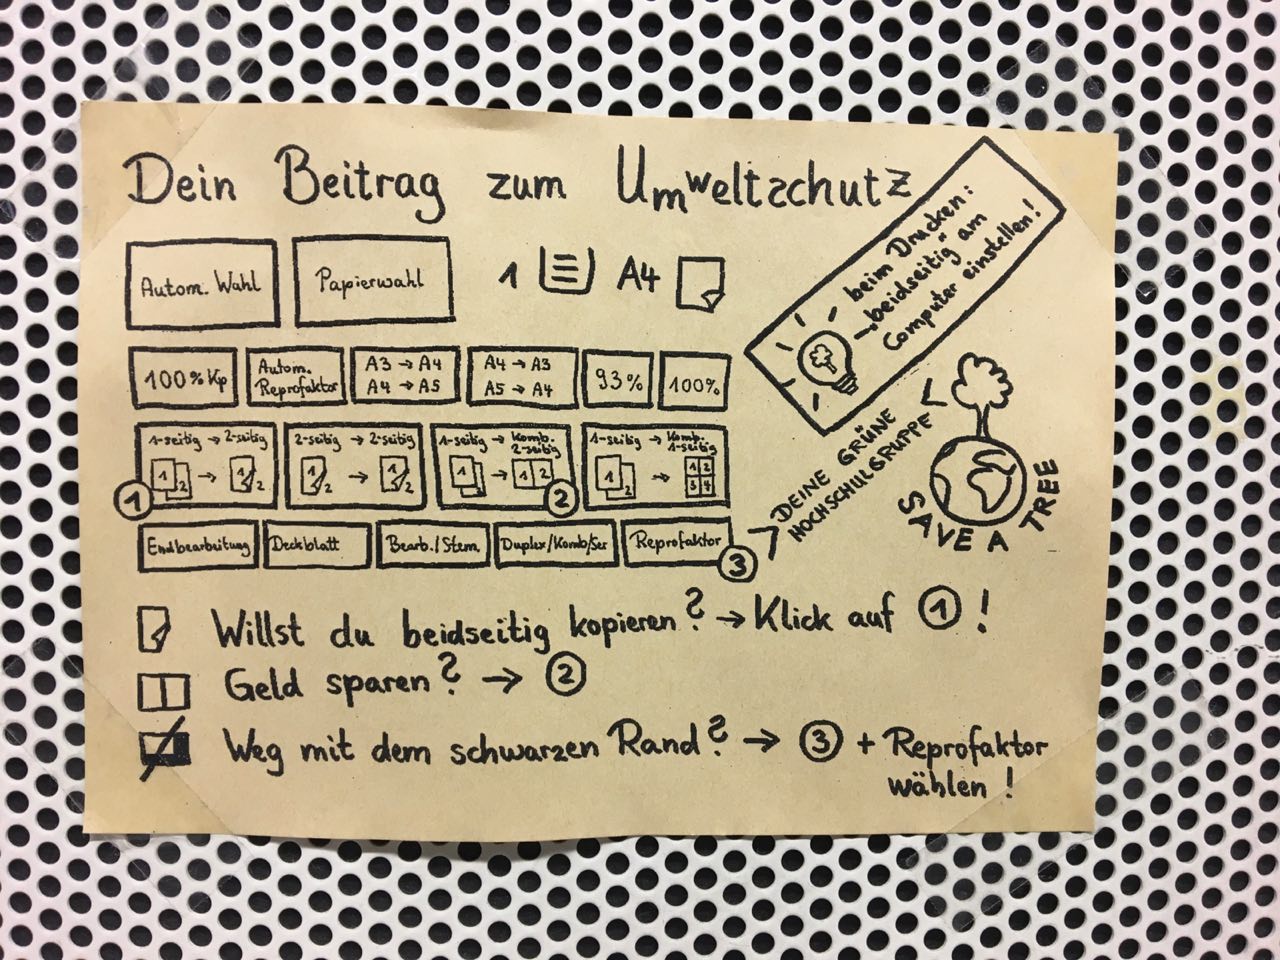 Dein Beitrag zum Umweltschutz
beim Drucken:
"beidseitig" am
Computer einstellen!
Autom. Wahl
Papierwahl
1
A4
100%Kp
Autom.
Reprofaktor
A3 → A4
A4 → A5
A4 → A3
A5 → A4
93%
100%
1-seitig → 2-seitig
1 → 1 2
2-seitig → 2-seitig
1 2 → 1 2
1-seitig → Komb.
2-seitig
1 → 1 2
1-seitig → Komb.
1-seitig
1 2 → 1 2
3 4
1
2
Endbearbeitung
Deckblatt
Bearb./Stem.
Duplex/Komb/Ser
Reprofaktor
3
> DEINE GRÜNE
HOCHSCHULGRUPPE <
SAVE A TREE
Willst du beidseitig kopieren? → Klick auf 1 !
Geld sparen? → 2
Weg mit dem schwarzen Rand? → 3 + Reprofaktor
wählen !